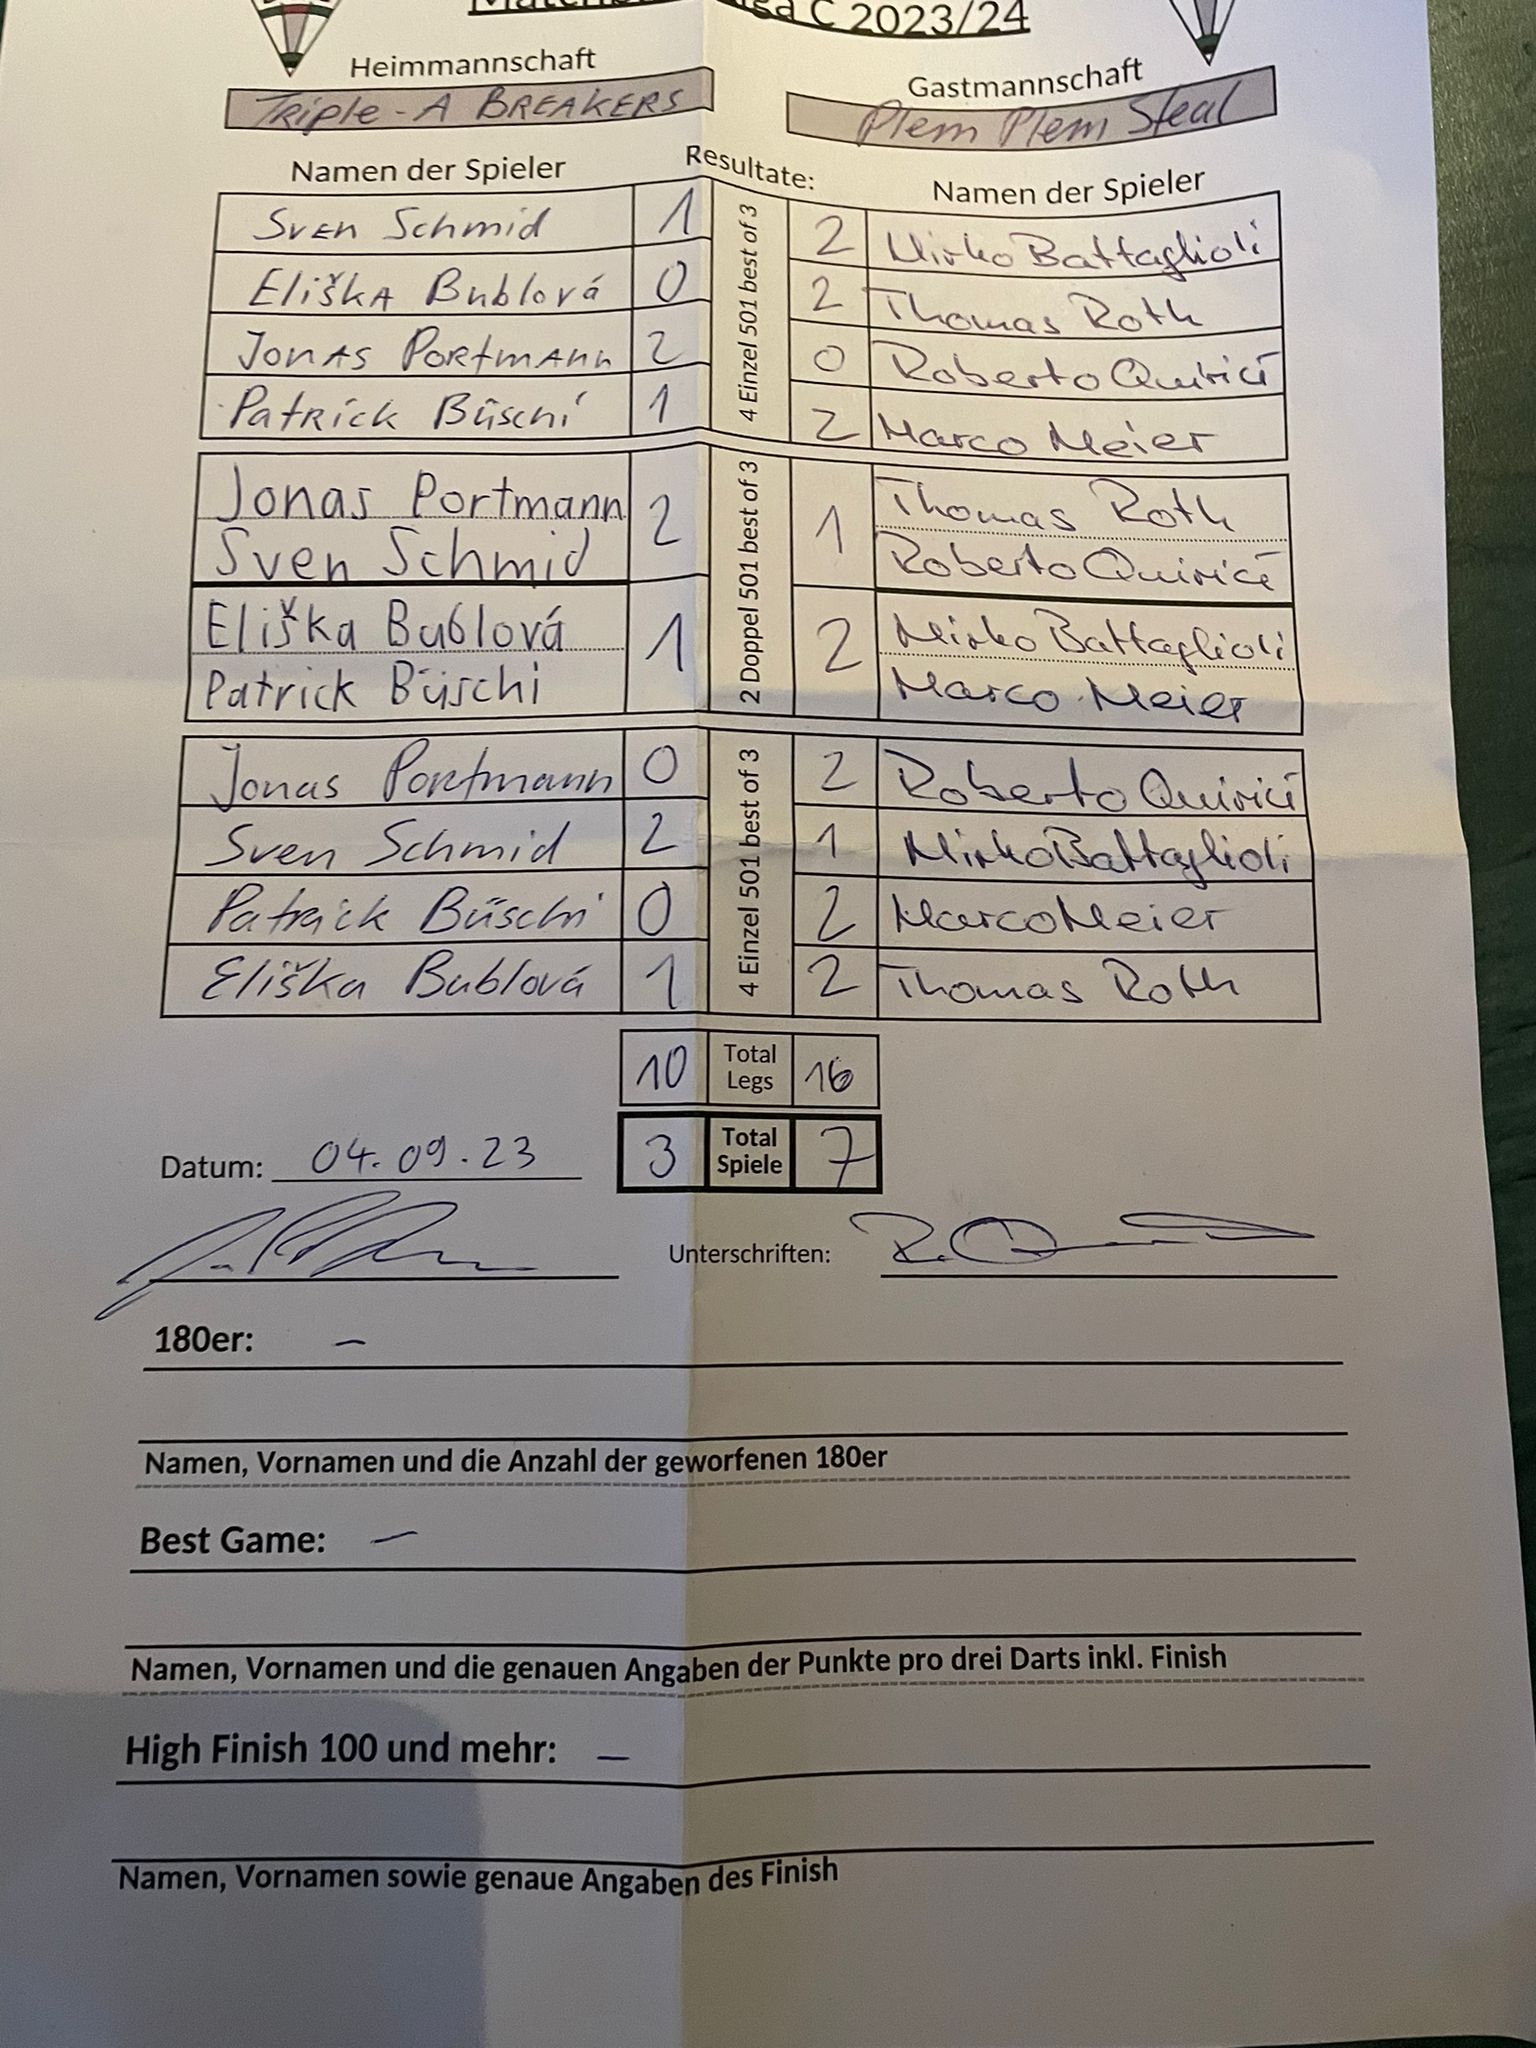 C 2023/24
Heimmannschaft
Gastmannschaft
Triple-A BREAKERS
Plem Plem Steal
Namen der Spieler
Resultate:
Namen der Spieler
Sven Schmid 1 2 Mirko Battaglioli
Eliška Bublová 0 2 Thomas Roth
Jonas Portmann 2 0 Roberto Quirici
Patrick Büschi 1 2 Marco Meier
4 Einzel 501 best of 3
Jonas Portmann 2 1 Thomas Roth
Sven Schmid Roberto Quirici
Eliška Bublová 1 2 Mirko Battaglioli
Patrick Büschi Marco Meier
2 Doppel 501 best of 3
Jonas Portmann 0 2 Roberto Quirici
Sven Schmid 2 1 Mirko Battaglioli
Patrick Büschi 0 2 Marco Meier
Eliška Bublová 1 2 Thomas Roth
4 Einzel 501 best of 3
10 Total Legs 16
Datum: 04.09.23 3 Total Spiele 7
Unterschriften:
180er: –
Namen, Vornamen und die Anzahl der geworfenen 180er
Best Game: –
Namen, Vornamen und die genauen Angaben der Punkte pro drei Darts inkl. Finish
High Finish 100 und mehr: –
Namen, Vornamen sowie genaue Angaben des Finish